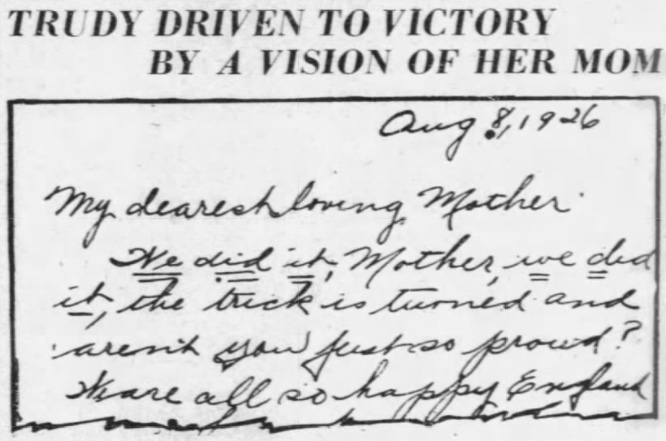 TRUDY DRIVEN TO VICTORY
BY A VISION OF HER MOM
Aug 8, 1926
My dearest loving Mother
We did it, Mother, we did
it, the trick is turned and
aren't you just so proud?
We are all so happy England